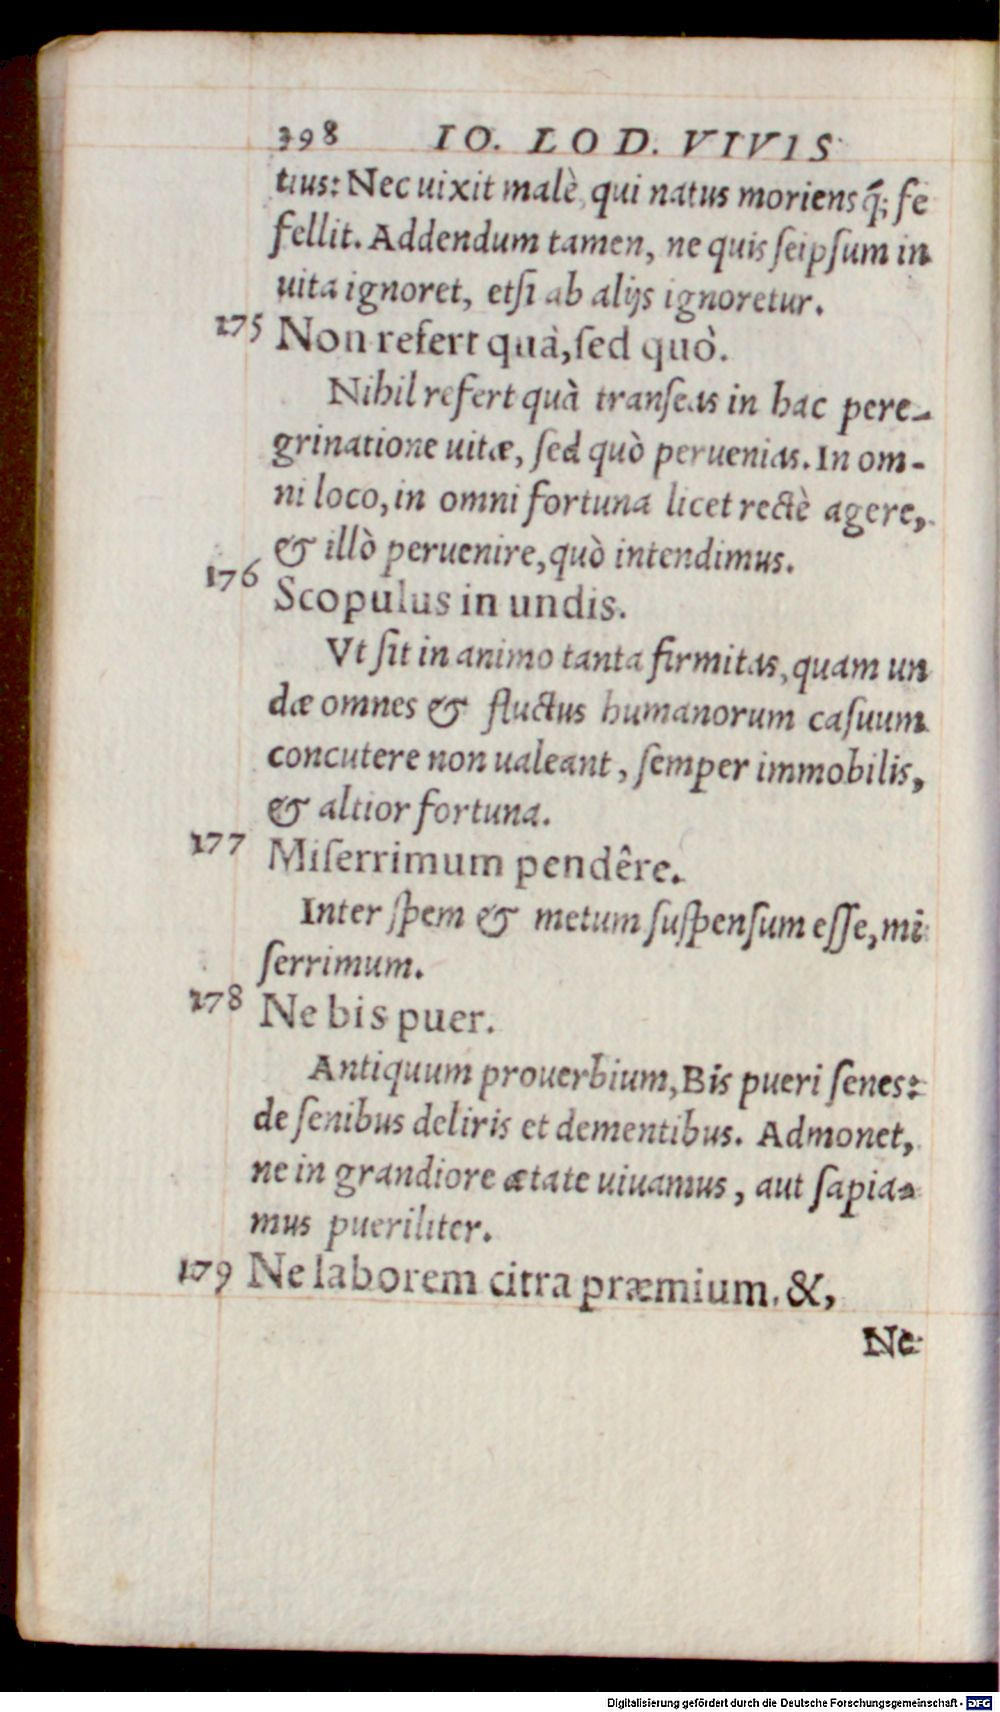 398 IO. LOD. VIVIS
tius: Nec uixit malè, qui natus moriensq́; fe
fellit. Addendum tamen, ne quis seipsum in
uita ignoret, etsi ab alijs ignoretur.
175 Non refert quà, sed quò.
Nihil refert quà transeas in hac pere-
grinatione uitæ, sed quò peruenias. In om-
ni loco, in omni fortuna licet rectè agere,
& illò peruenire, quò intendimus.
176 Scopulus in undis.
Vt sit in animo tanta firmitas, quam un
dæ omnes & fluctus humanorum casuum
concutere non ualeant, semper immobilis,
& altior fortuna.
177 Miserrimum pendêre.
Inter spem & metum suspensum esse, mi
serrimum.
178 Ne bis puer.
Antiquum prouerbium, Bis pueri senes:
de senibus deliris et dementibus. Admonet,
ne in grandiore ætate uiuamus, aut sapia-
mus pueriliter.
179 Ne laborem citra præmium. &,
Ne
Digitalisierung gefördert durch die Deutsche Forschungsgemeinschaft - DFG